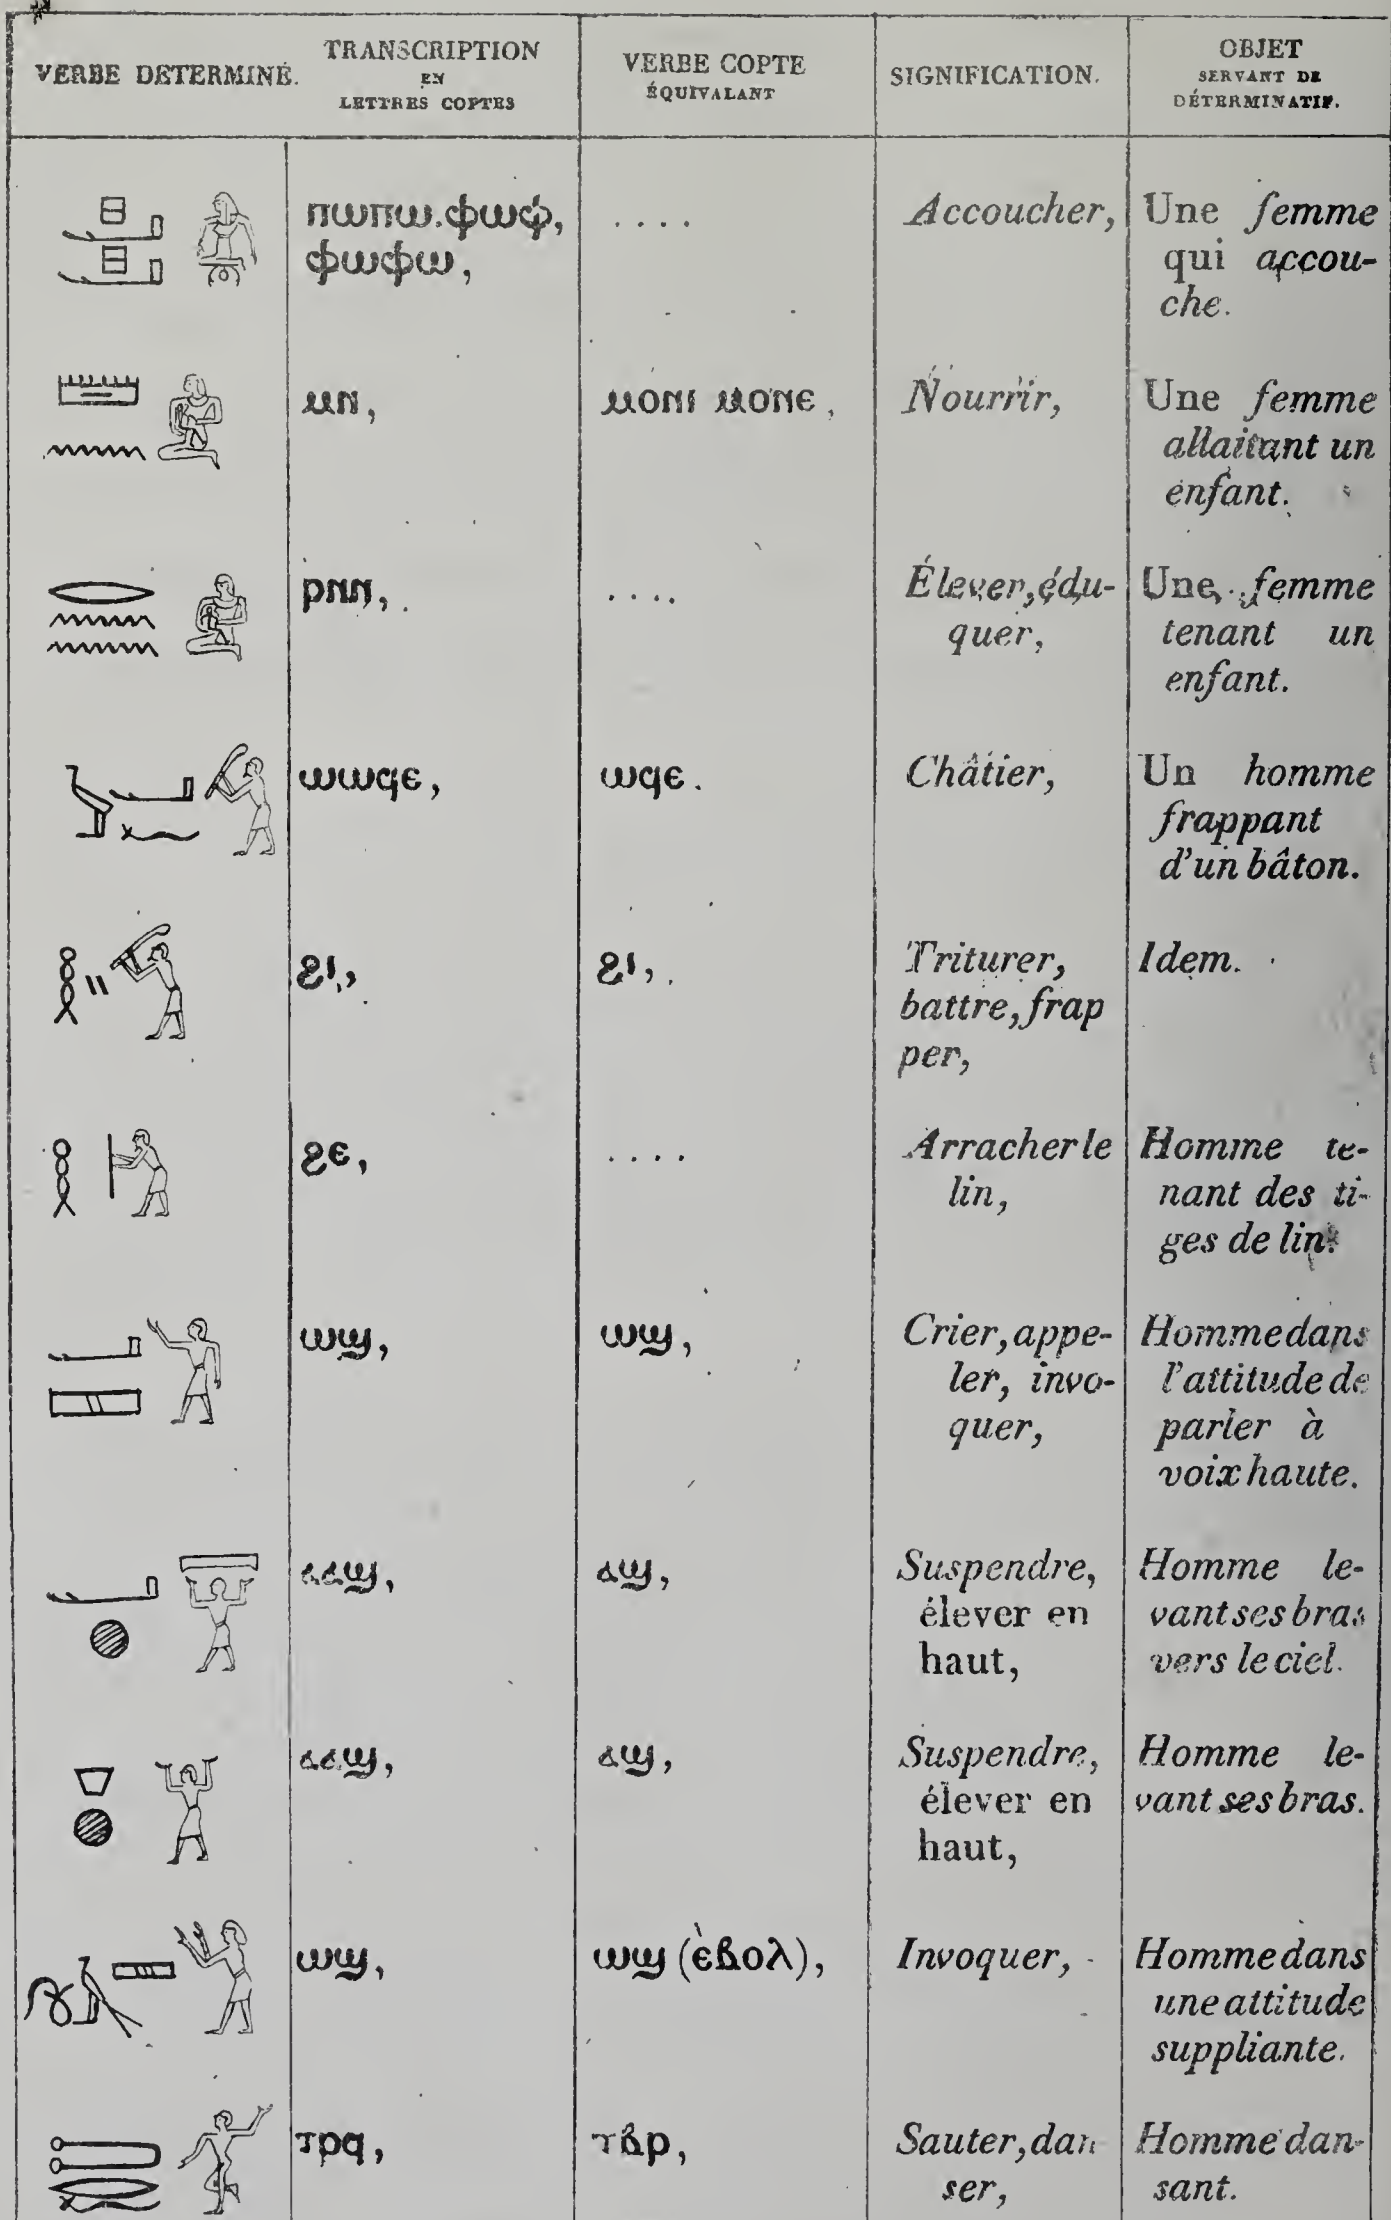 VERBE DÉTERMINÉ.
TRANSCRIPTION
EN
LETTRES COPTES
VERBE COPTE
ÉQUIVALANT
SIGNIFICATION.
OBJET
SERVANT DE
DÉTERMINATIF.
ⲡⲱⲡⲱ.ⲫⲱⲫ,
ⲫⲱⲫⲱ,
....
Accoucher,
Une femme
qui accou-
che.
ⲙⲛ,
ⲙⲟⲛⲓ ⲙⲟⲛⲉ,
Nourrir,
Une femme
allaitant un
enfant.
ⲣⲛⲛ,
....
Élever, édu-
quer,
Une femme
tenant un
enfant.
ⲱⲱϥⲉ,
ⲱϥⲉ.
Châtier,
Un homme
frappant
d'un bâton.
ϩⲓ,
ϩⲓ,
Triturer,
battre, frap
per,
Idem.
ϩⲉ,
....
Arracher le
lin,
Homme te-
nant des ti-
ges de lin.
ⲱϣ,
ⲱϣ,
Crier, appe-
ler, invo-
quer,
Homme dans
l'attitude de
parler à
voix haute.
ⲁⲁϣ,
ⲁϣ,
Suspendre,
élever en
haut,
Homme le-
vant ses bras
vers le ciel.
ⲁⲁϣ,
ⲁϣ,
Suspendre,
élever en
haut,
Homme le-
vant ses bras.
ⲱϣ,
ⲱϣ (ⲉ̀ⲃⲟⲗ),
Invoquer,
Homme dans
une attitude
suppliante.
ⲧⲣϥ,
ⲧⲃⲣ,
Sauter, dan
ser,
Homme dan-
sant.